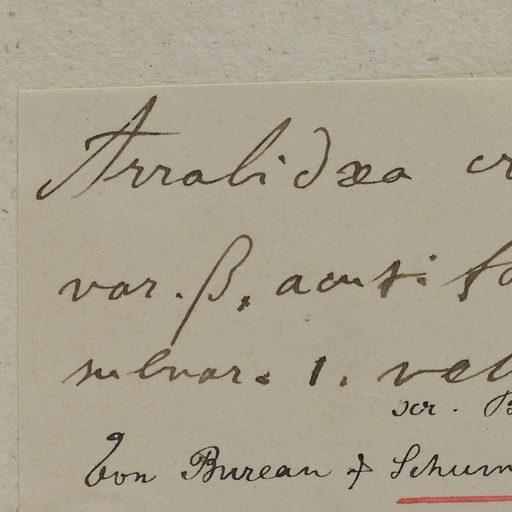 Arrabidæa cr
var. β. acuti fo
subvar. 1. vel
scr. B
Von Bureau & Schum